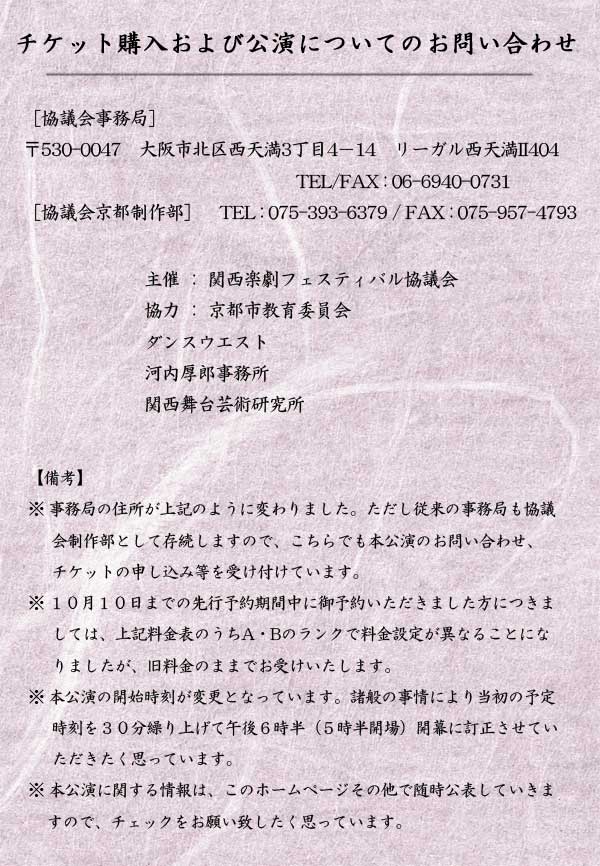 チケット購入および公演についてのお問い合わせ
［協議会事務局］
〒530-0047　大阪市北区西天満3丁目4－14　リーガル西天満II404
TEL/FAX：06-6940-0731
［協議会京都制作部］　TEL：075-393-6379 / FAX：075-957-4793
主催 ： 関西楽劇フェスティバル協議会
協力 ： 京都市教育委員会
ダンスウエスト
河内厚郎事務所
関西舞台芸術研究所
【備考】
※ 事務局の住所が上記のように変わりました。ただし従来の事務局も協議
会制作部として存続しますので、こちらでも本公演のお問い合わせ、
チケットの申し込み等を受け付けています。
※ １０月１０日までの先行予約期間中に御予約いただきました方につきま
しては、上記料金表のうちA・Bのランクで料金設定が異なることにな
りましたが、旧料金のままでお受けいたします。
※ 本公演の開始時刻が変更となっています。諸般の事情により当初の予定
時刻を３０分繰り上げて午後６時半（５時半開場）開幕に訂正させてい
ただきたく思っています。
※ 本公演に関する情報は、このホームページその他で随時公表していきま
すので、チェックをお願い致したく思っています。